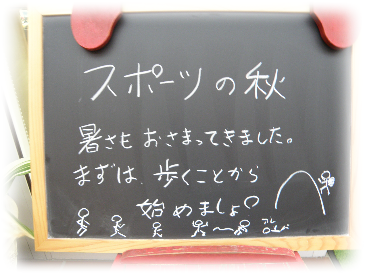 スポーツの秋
暑さも おさまってきました。
まずは、歩くことから
始めましょ♡